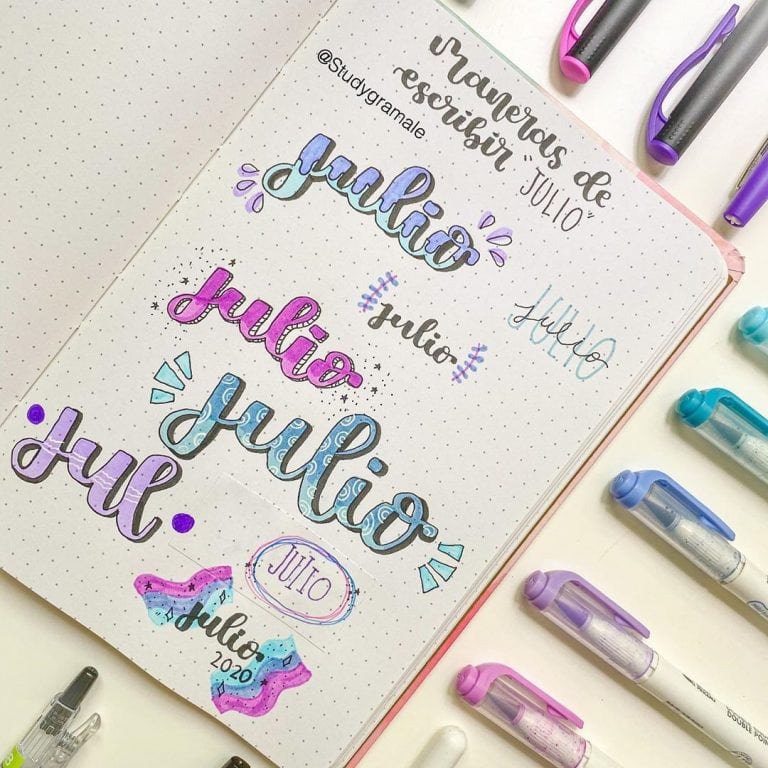 @Studygramale
Maneras de
escribir "JULIO"
julio
julio
julio
JULIO
julio
julio
jul
JULIO
julio
2020
DOUBLE POINT